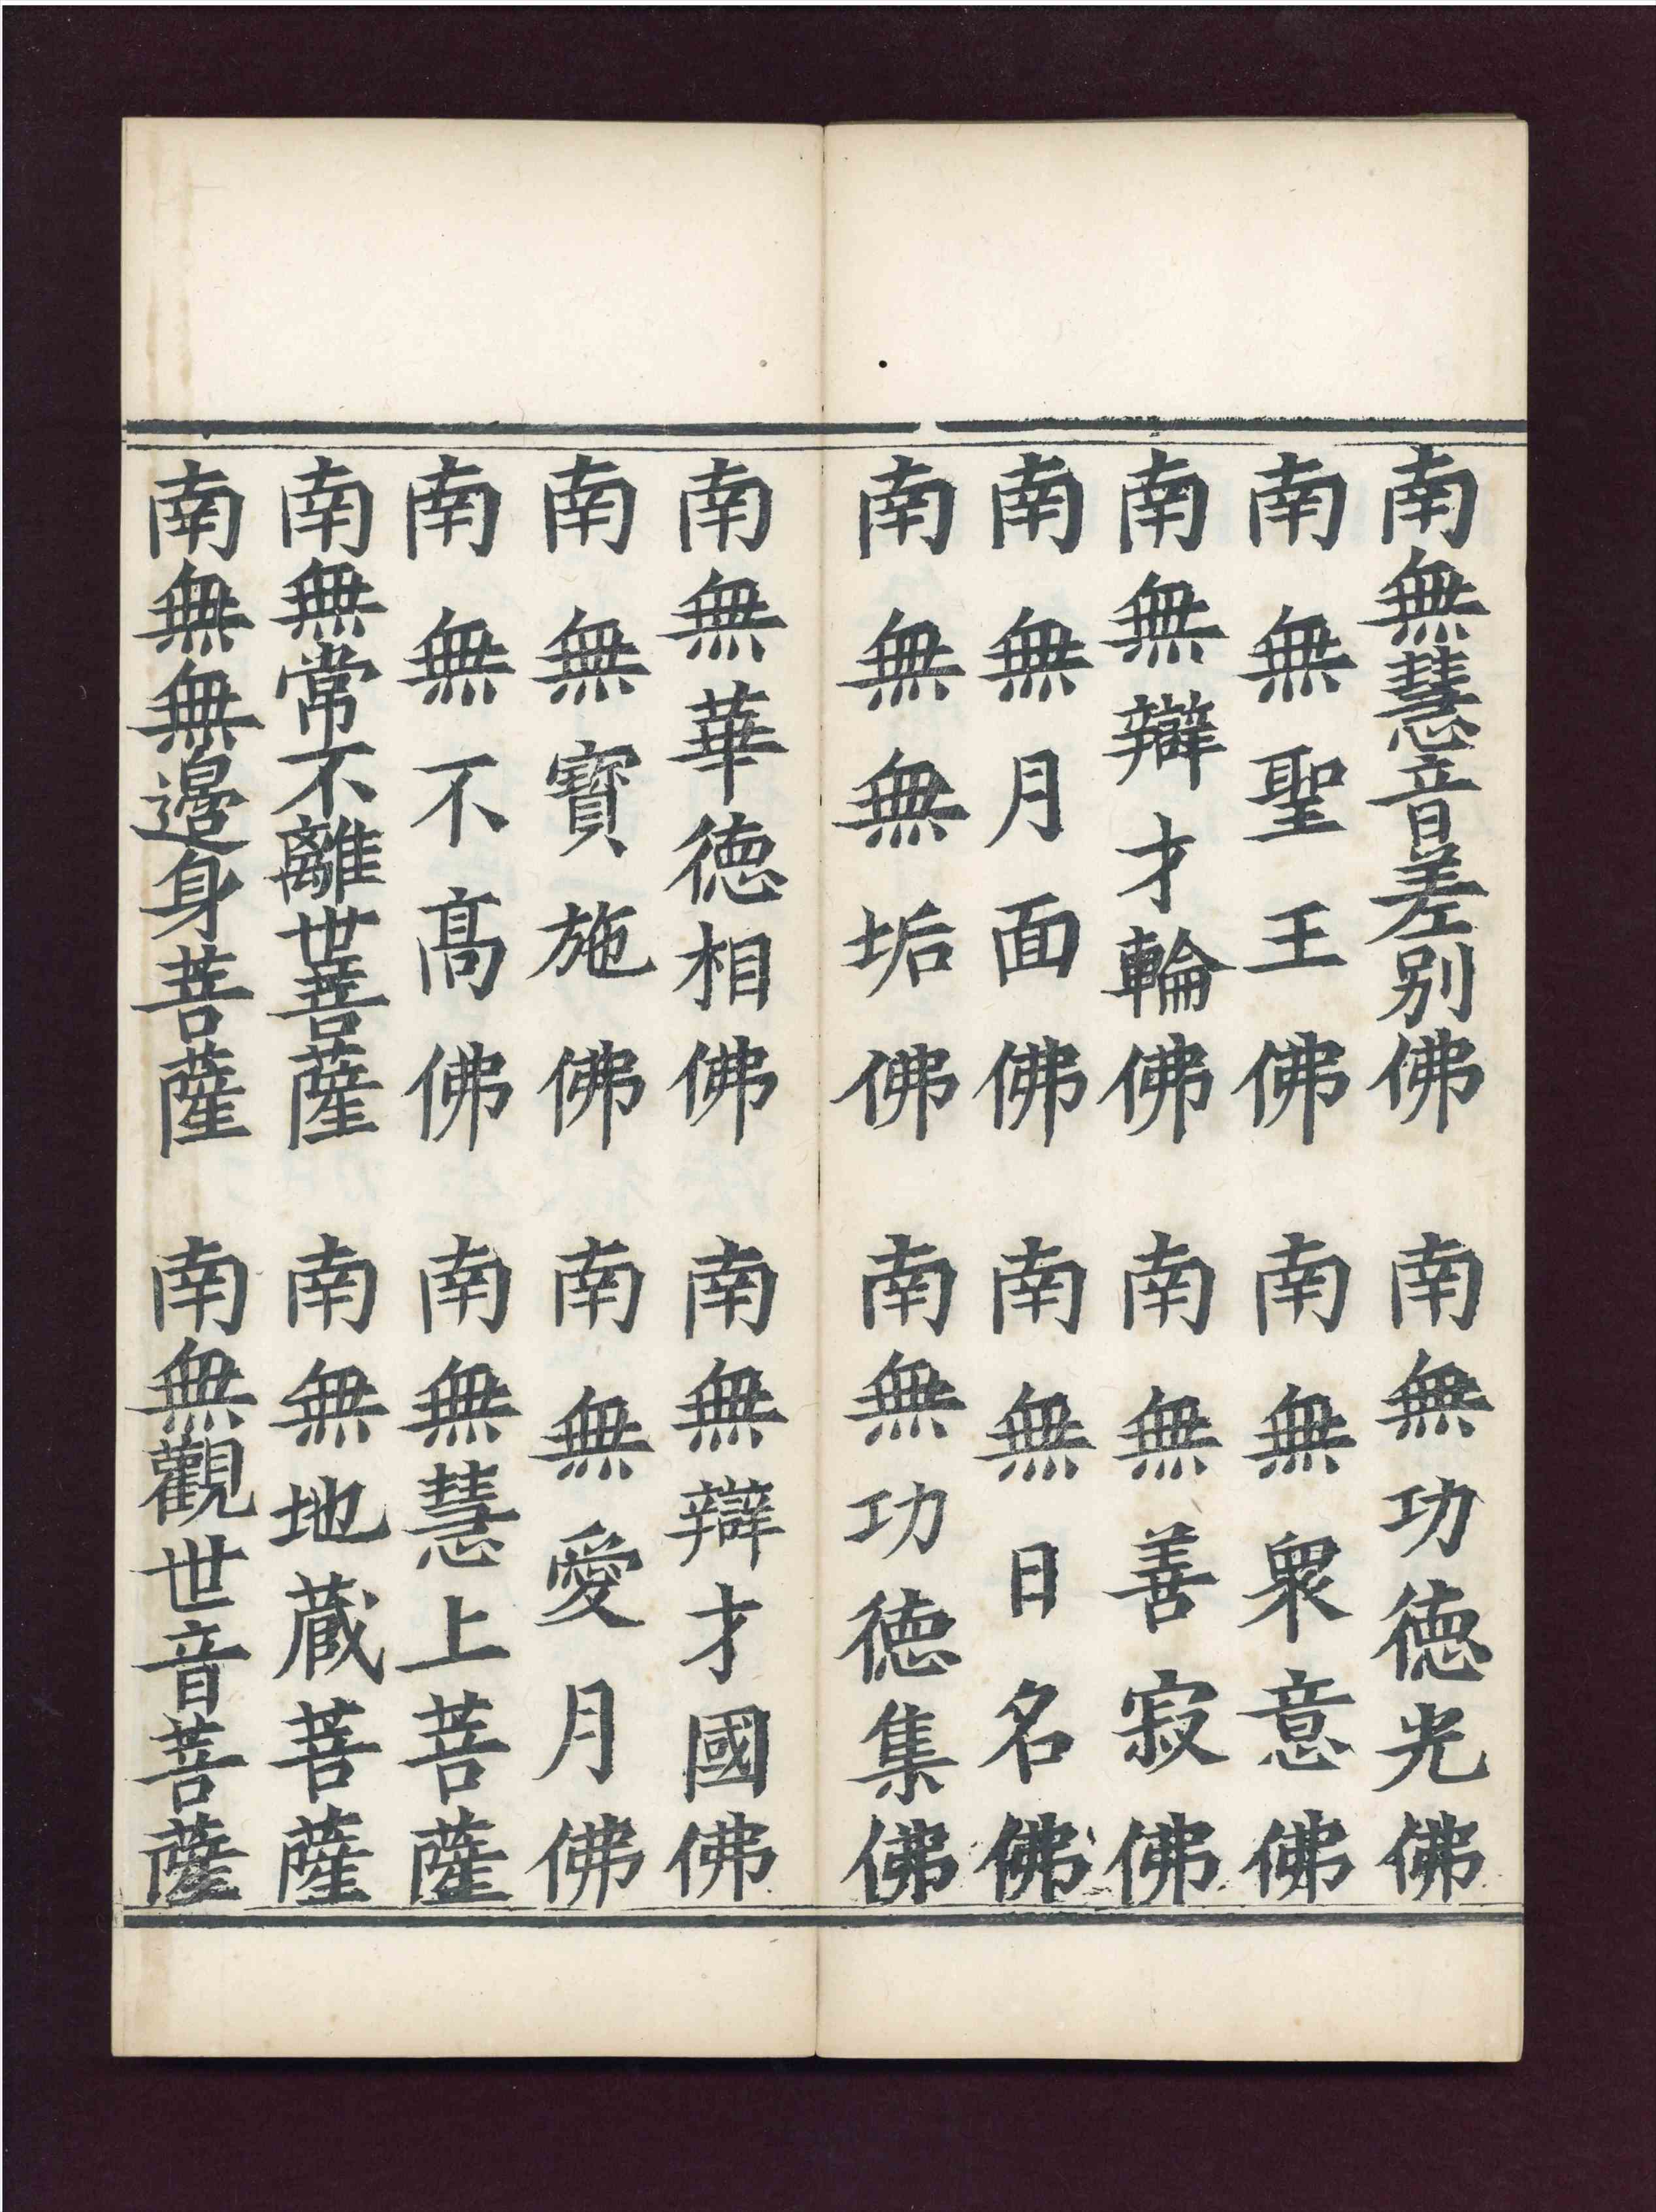 南無慧音差别佛　南無功德光佛
南無聖王佛　南無衆意佛
南無辯才輪佛　南無善寂佛
南無月面佛　南無日名佛
南無無垢佛　南無功德集佛
南無華德相佛　南無辯才國佛
南無寶施佛　南無愛月佛
南無不髙佛　南無慧上菩薩
南無常不離世菩薩　南無地蔵菩薩
南無無邊身菩薩　南無觀世音菩薩